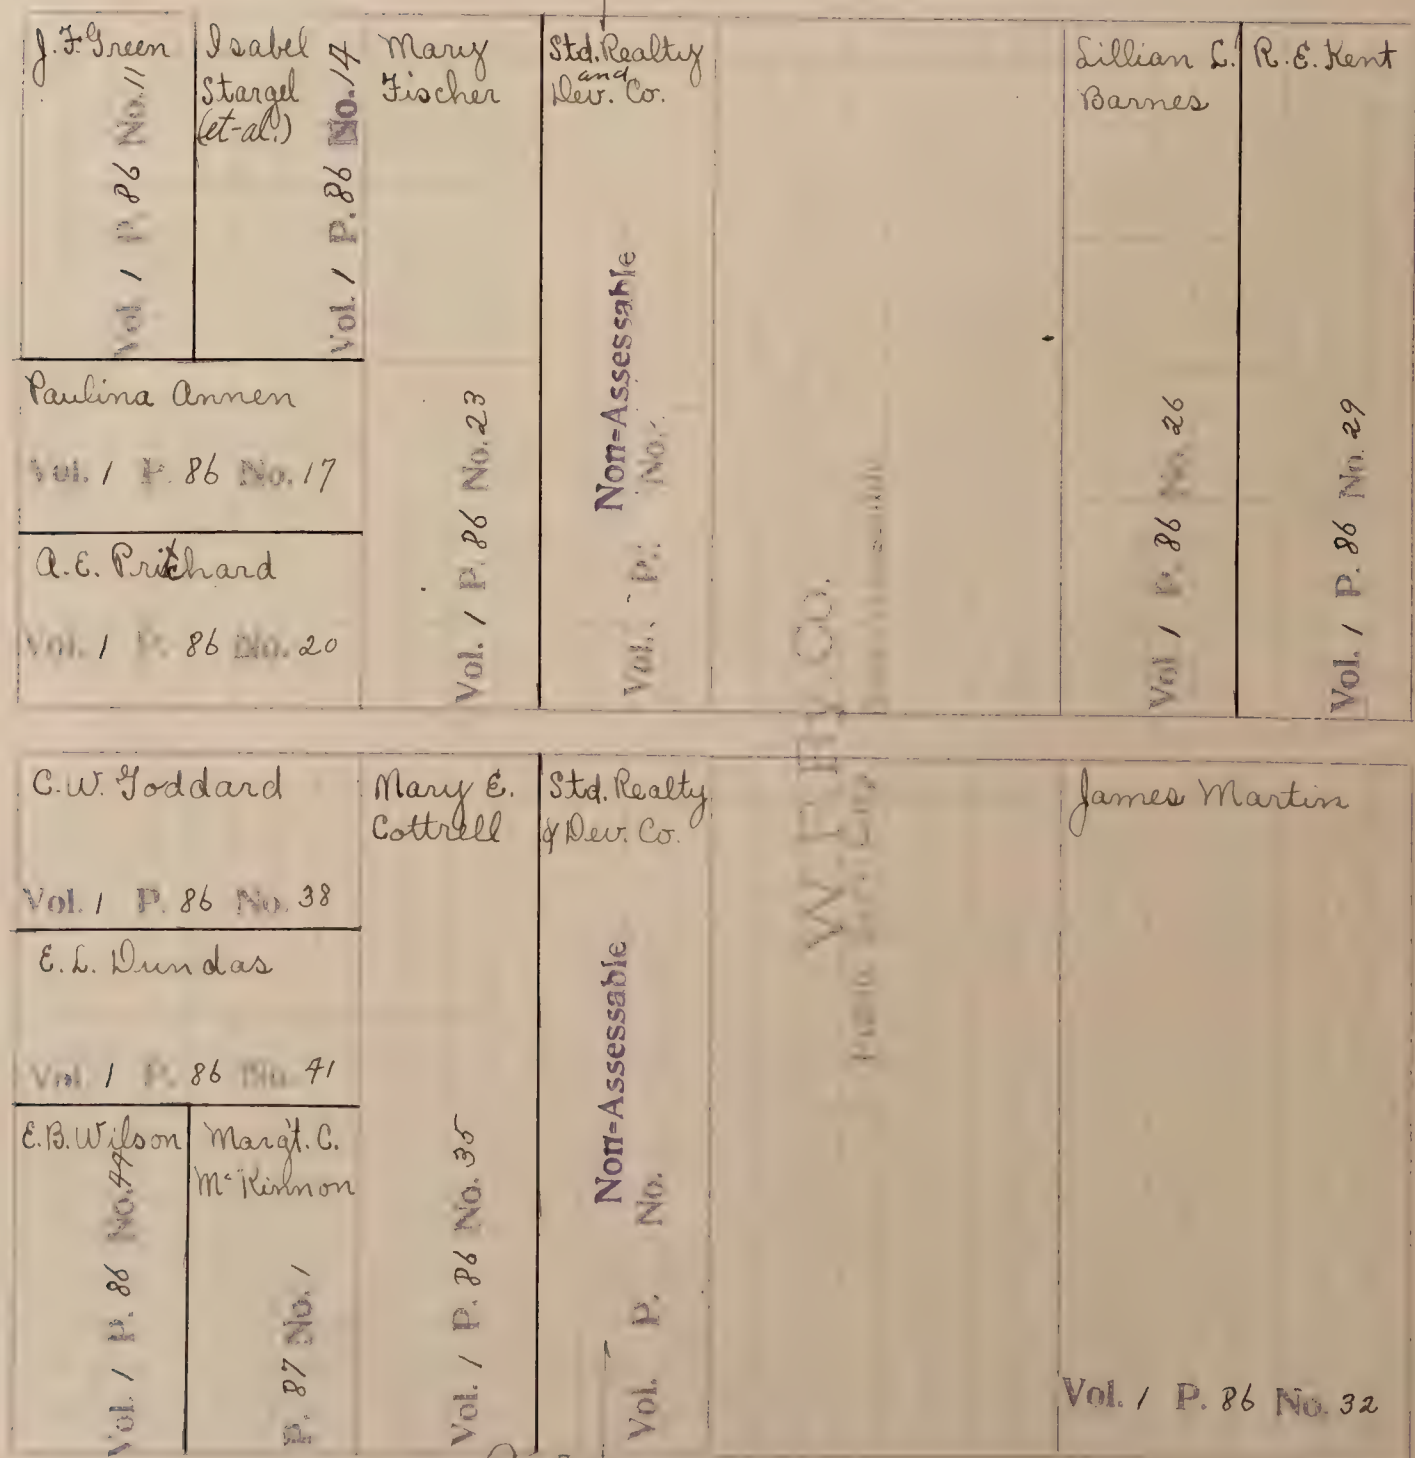 J. F. Green
Vol. 1 P. 86 No. 11
Isabel
Stargel
(et-al.)
Vol. 1 P. 86 No. 14
Mary
Fischer
Vol. 1 P. 86 No. 23
Std. Realty
and
Dev. Co.
Non=Assessable
Vol. P. No.
Lillian L.
Barnes
Vol. 1 P. 86 No. 26
R. E. Kent
Vol. 1 P. 86 No. 29
Paulina Annen
Vol. 1 P. 86 No. 17
A. E. Pritchard
Vol. 1 P. 86 No. 20
C. W. Goddard
Vol. 1 P. 86 No. 38
E. L. Dundas
Vol. 1 P. 86 No. 41
E. B. Wilson
Vol. 1 P. 86 No. 44
Margt. C.
McKinnon
P. 87 No. 1
Mary E.
Cottrell
Vol. 1 P. 86 No. 35
Std. Realty
& Dev. Co.
Non=Assessable
Vol. P. No.
James Martin
Vol. 1 P. 86 No. 32